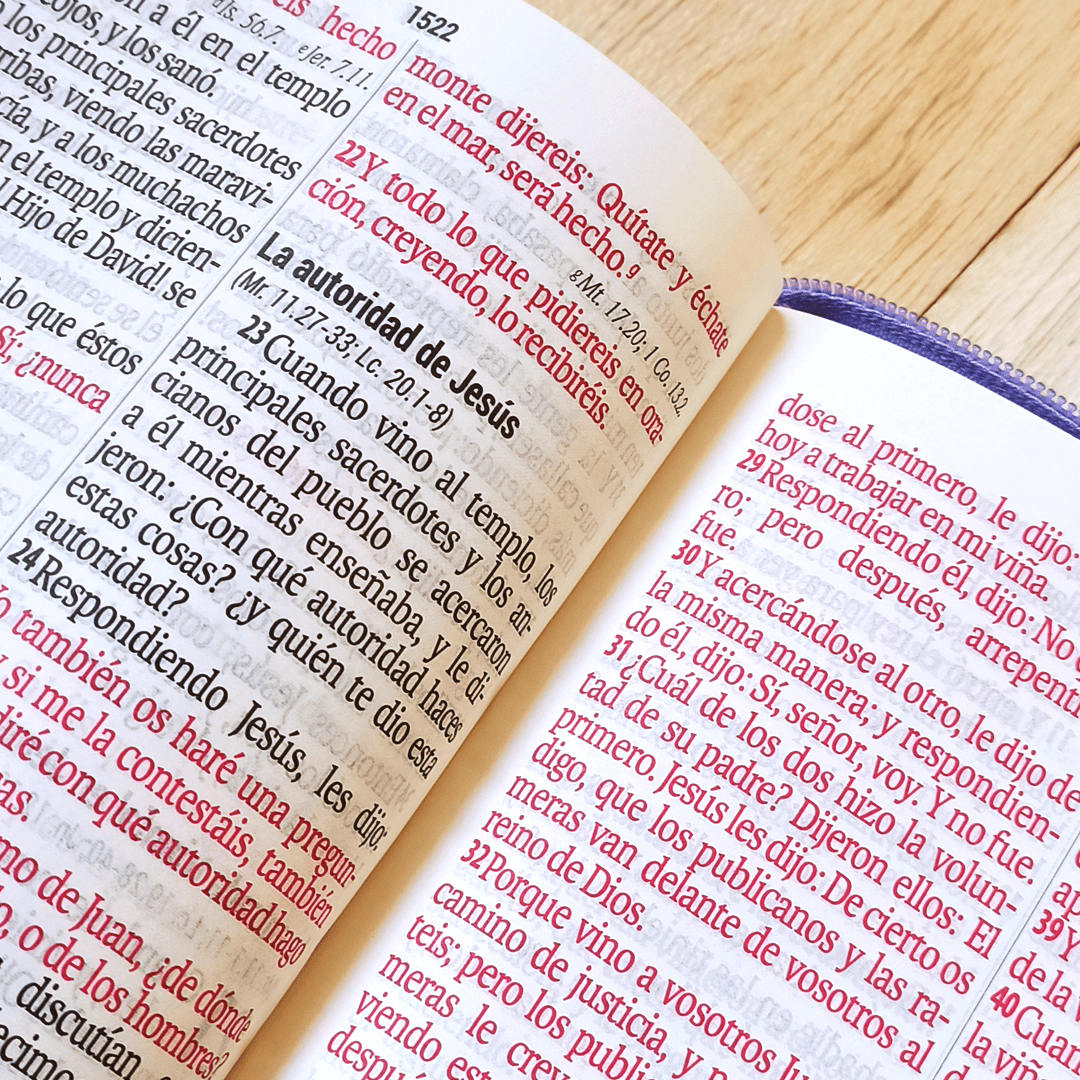 hecho
dIs. 56.7. eJer. 7.11.
a él en el templo
cojos, y los sanó.
los principales sacerdotes
viendo las maravi-
y a los muchachos
en el templo y dicien-
Hijo de David! se
lo que éstos
Sí; ¿nunca
1522
monte dijereis: Quítate y échate
en el mar, será hecho.g
gMt. 17.20; 1 Co. 13.2.
22 Y todo lo que pidiereis en ora-
ción, creyendo, lo recibiréis.
La autoridad de Jesús
(Mr. 11.27-33; Lc. 20.1-8)
23 Cuando vino al templo, los
principales sacerdotes y los an-
cianos del pueblo se acercaron
a él mientras enseñaba, y le di-
jeron: ¿Con qué autoridad haces
estas cosas? ¿y quién te dio esta
autoridad?
24 Respondiendo Jesús, les dijo:
también os haré una pregun-
y si me la contestáis, también
diré con qué autoridad hago
de Juan, ¿de dónde
o de los hombres?
discutían
dose al primero, le dijo:
hoy a trabajar en mi viña.
29 Respondiendo él, dijo: No
ro; pero después,
fue.
30 Y acercándose al otro, le dijo de
la misma manera; y respondien-
do él, dijo: Sí, señor, voy. Y no fue.
31 ¿Cuál de los dos hizo la volun-
tad de su padre? Dijeron ellos: El
primero. Jesús les dijo: De cierto os
digo, que los publicanos y las ra-
meras van delante de vosotros al
reino de Dios.
32 Porque vino a vosotros
camino de justicia, y
teis; pero los
meras le
viendo
39 Y
de la
40
la